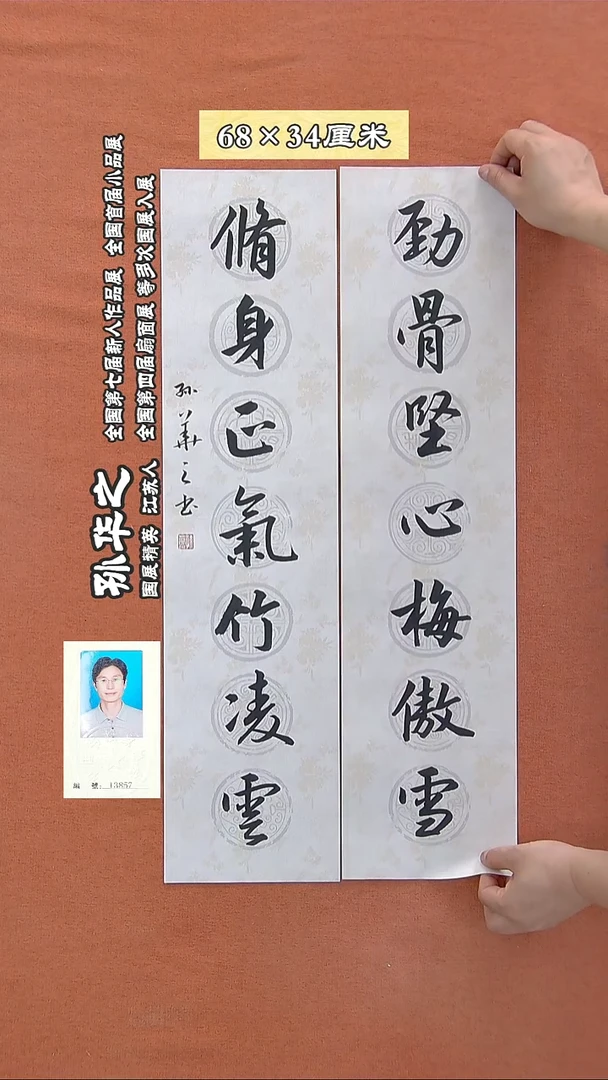 68×34厘米
勁骨堅心梅傲雪
脩身正氣竹凌雲
孙華之书
全国第七届新人作品展 全国首届小品展
全国第四届扇面展 等多次国展入展
孙华之
国展精英 江苏人
編 號: 13857